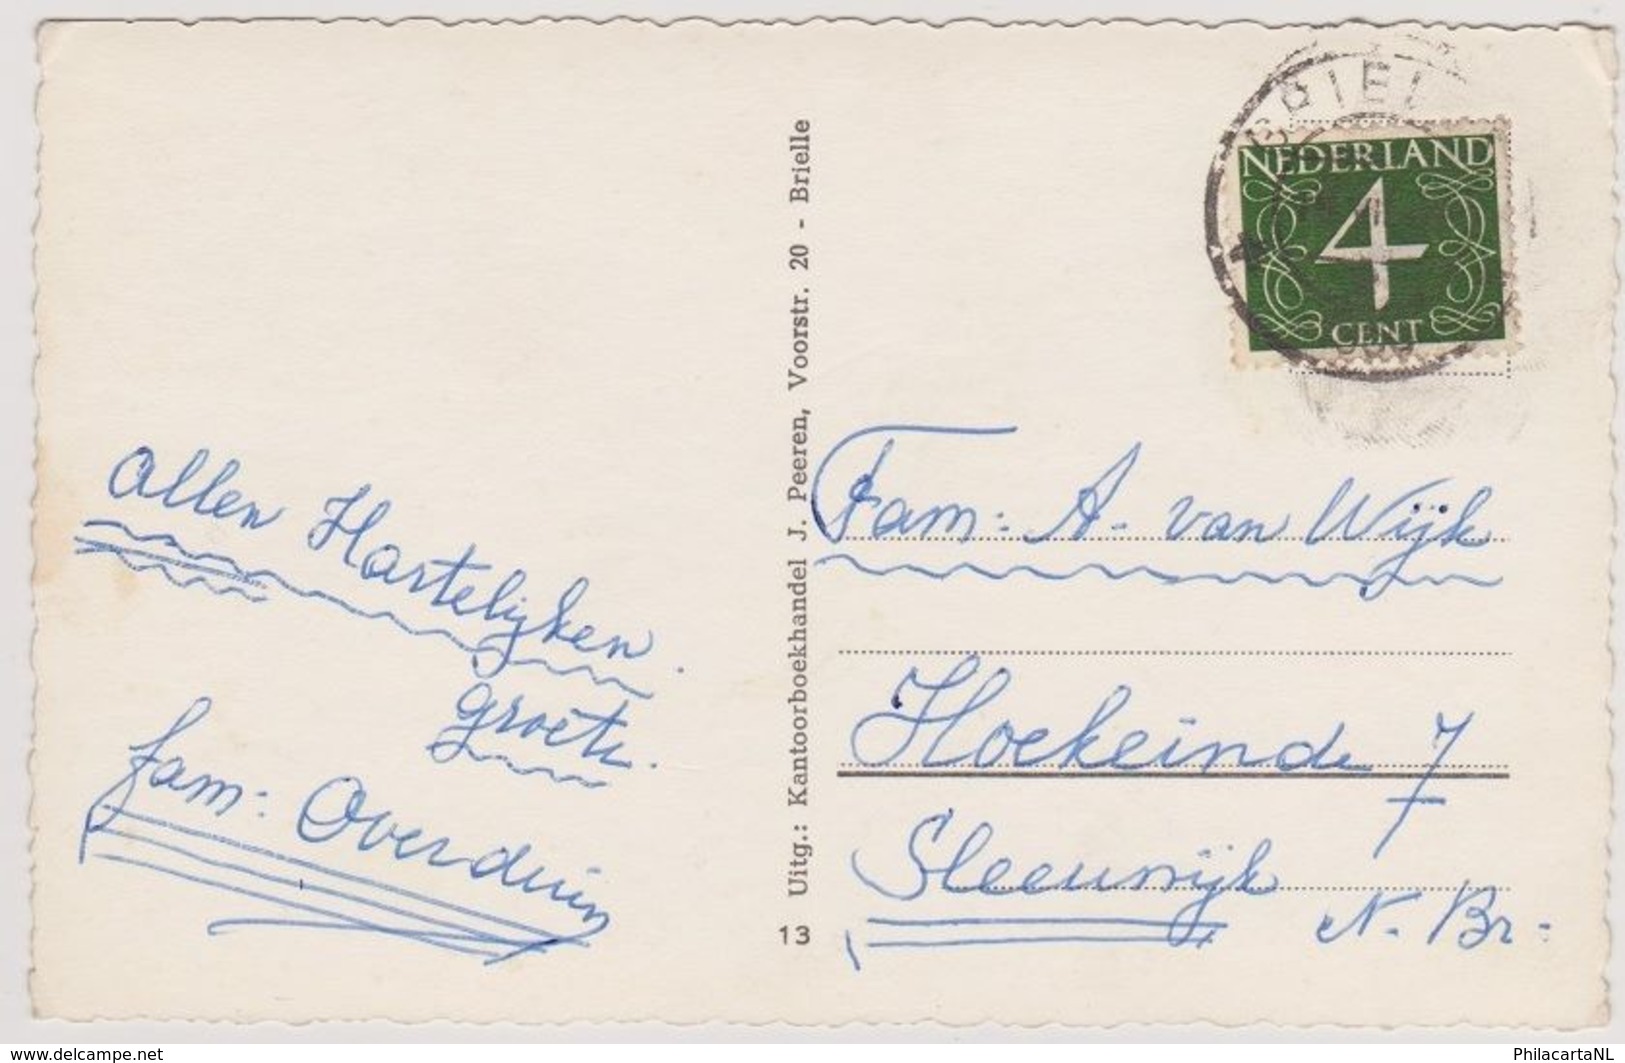 BRIEL
NEDERLAND
4
CENT
Allen Hartelijken
groeten.
fam: Overduin
Uitg.: Kantoorboekhandel J. Peeren, Voorstr. 20 - Brielle
13
Fam: A. van Wijk
Hoekeinde 7
Sleeuwijk
N. Br.
www.delcampe.net
PhilacartaNL